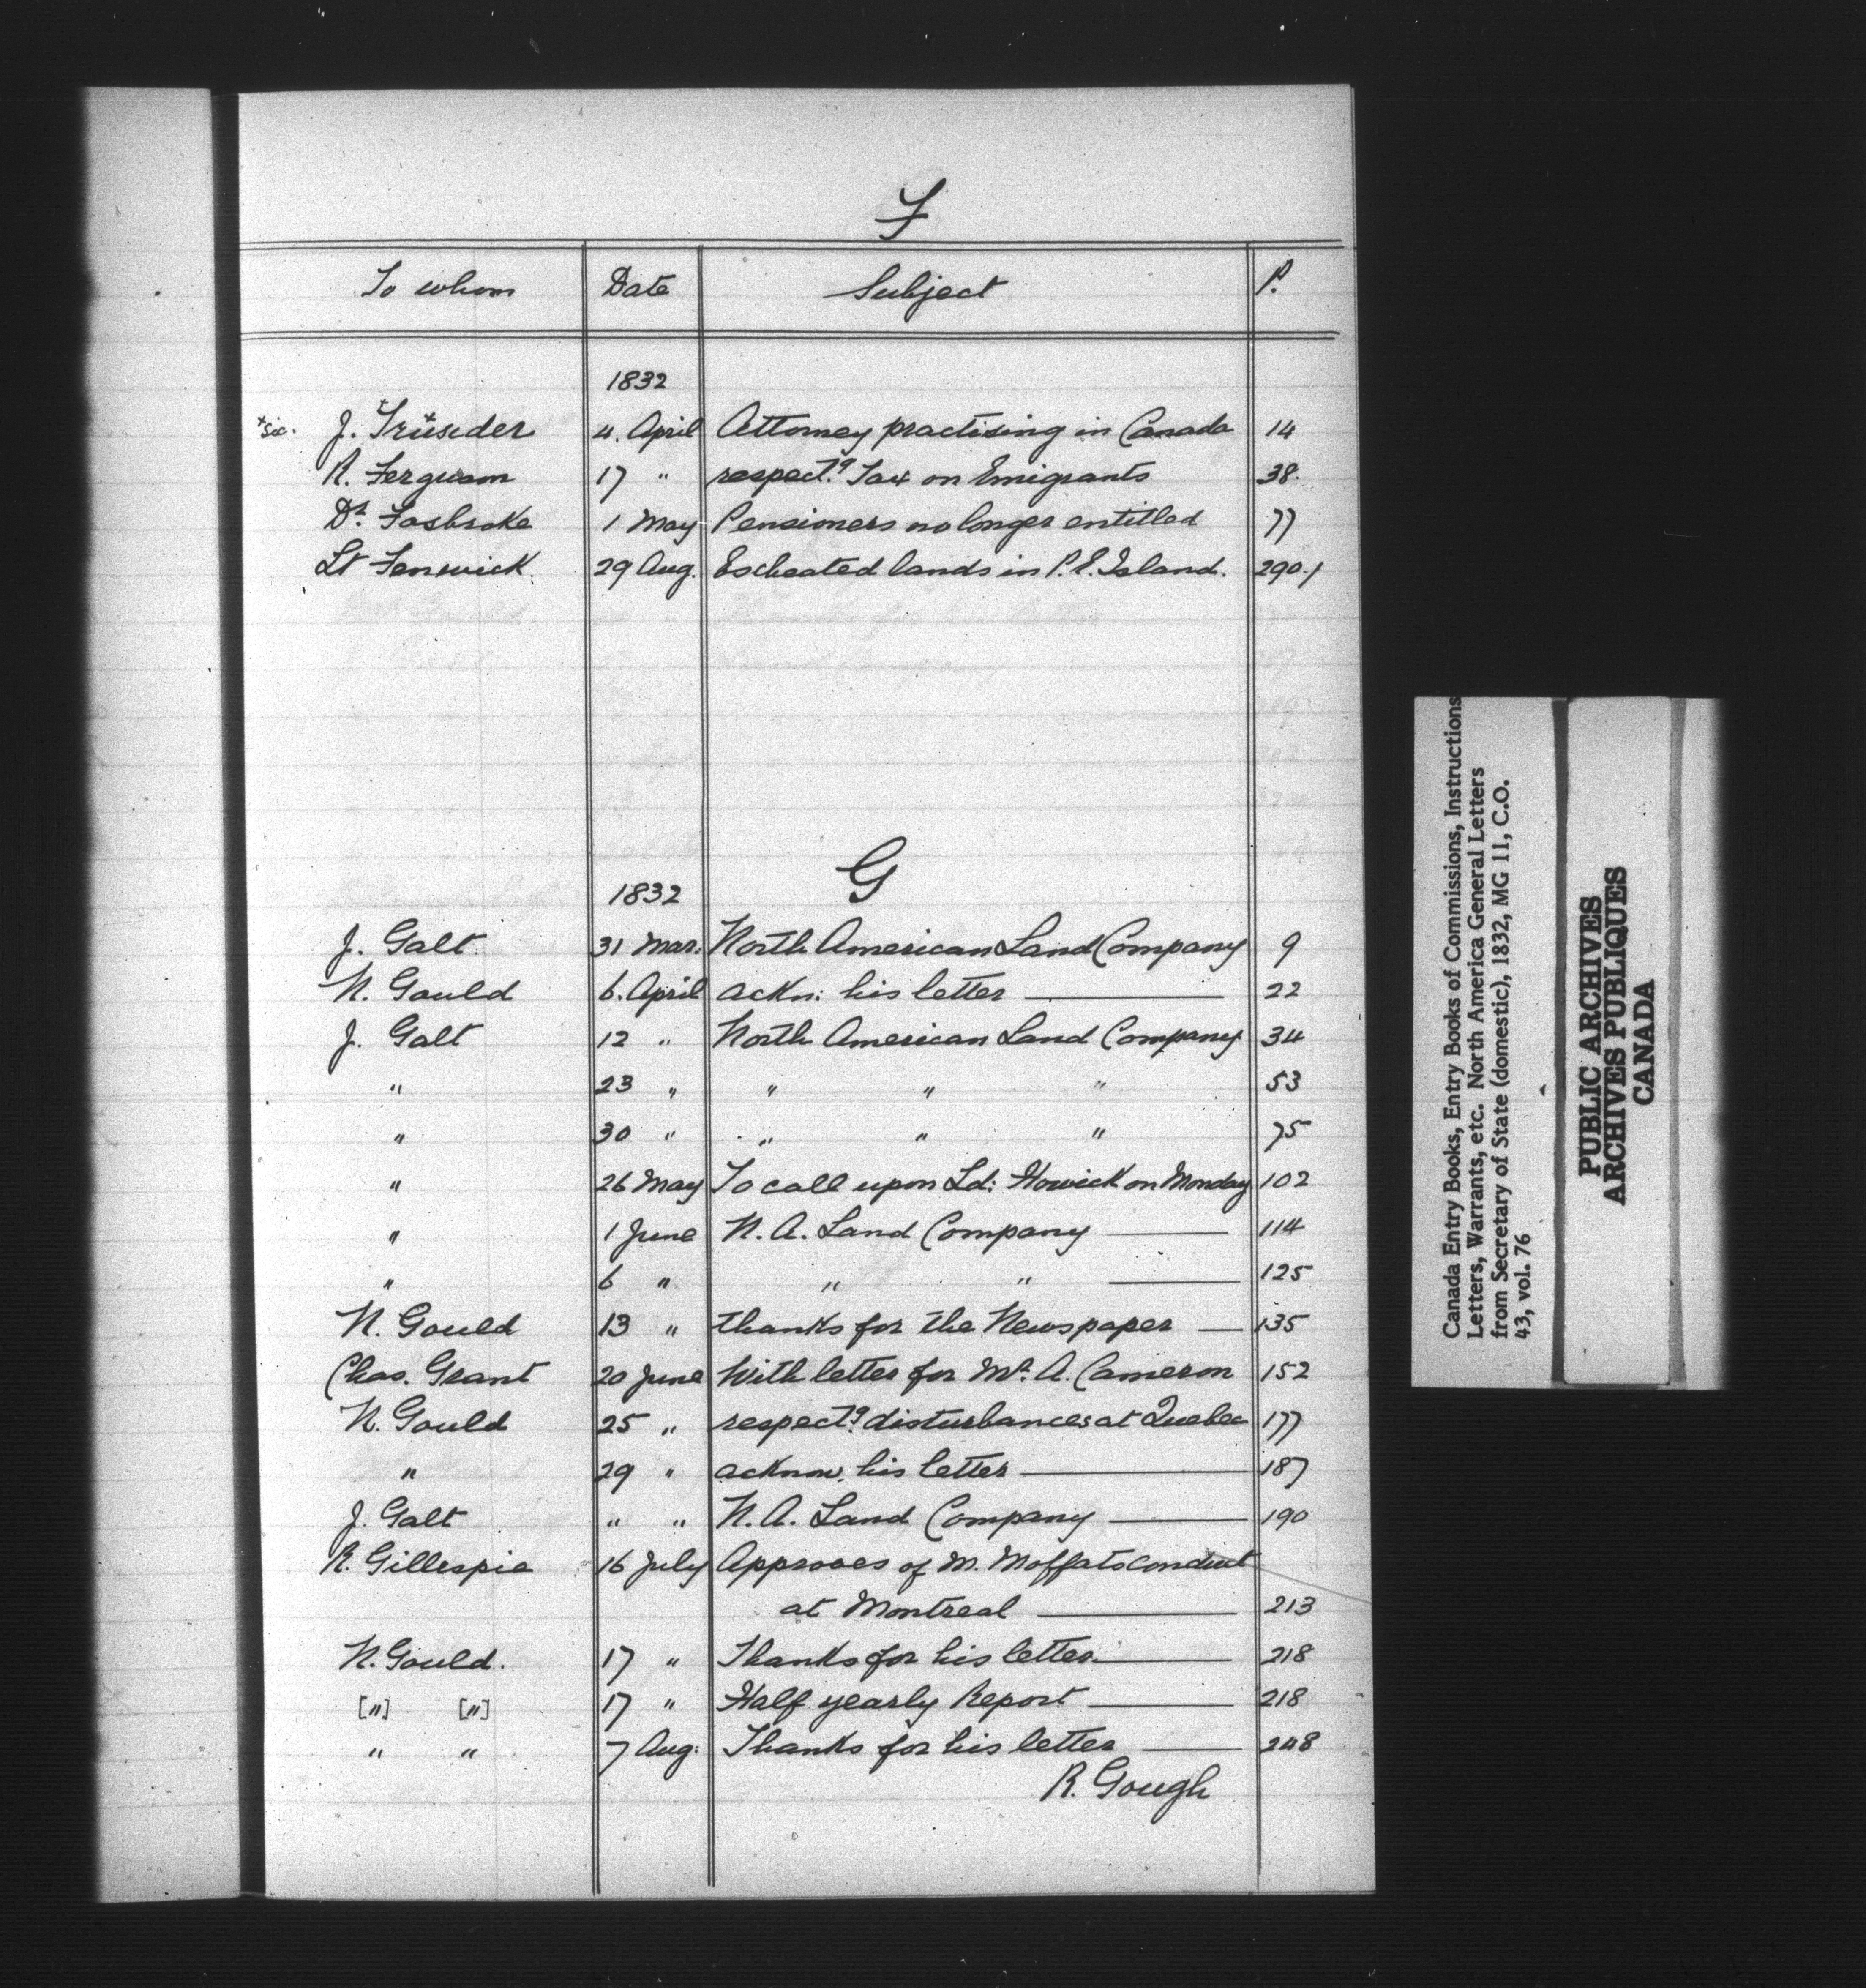 F
To whom Date Subject P.
1832
+sic. J. Früseder 4. April Attorney practising in Canada 14
R. Ferguson 17 " respectg. Tax on Emigrants 38.
Dr. Fosbroke 1 May Pensioners no longer entitled 77
Lt Fenwick. 29 Aug. Escheated lands in P. E. Island. 290.
G
1832
J. Galt. 31 Mar: North American Land Company 9
N. Gould 6. April ackn: his letter — 22
J. Galt 12 " North American Land Company 34
" 23 " " " " 53
" 30 " " " " 75
" 26 May To call upon Ld: Howick on Monday 102
" 1 June N. A. Land Company — 114
" 6 " " " — 125
N. Gould 13 " thanks for the Newspaper — 135
Chas. Grant 20 June With letter for Mr. A. Cameron 152
N. Gould 25 " respectg. disturbances at Quebec 177
" 29 " acknow. his letter — 187
J. Galt " " N. A. Land Company — 190
R. Gillespie 16 July Approves of M. Moffats conduct
at Montreal — 213
N. Gould. 17 " Thanks for his letter. — 218
["] ["] 17 " Half yearly Report — 218
" " 7 Aug: Thanks for his letter — 248
R. Gough
Canada Entry Books, Entry Books of Commissions, Instructions
Letters, Warrants, etc. North America General Letters
from Secretary of State (domestic), 1832, MG 11, C.O.
43, vol. 76
PUBLIC ARCHIVES
ARCHIVES PUBLIQUES
CANADA